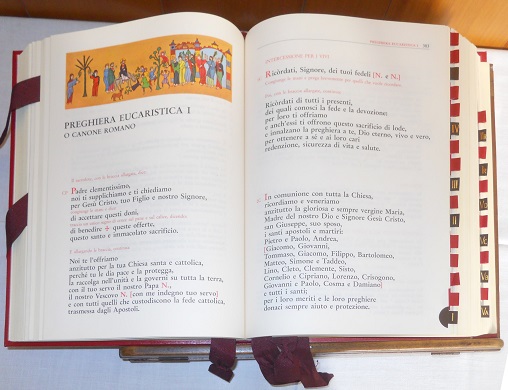 PREGHIERA EUCARISTICA I
O CANONE ROMANO
Il sacerdote, con le braccia allargate, dice:
Padre clementissimo,
noi ti supplichiamo e ti chiediamo
per Gesù Cristo, tuo Figlio e nostro Signore,
congiunge le mani e dice:
di accettare questi doni,
di benedire ✠ queste offerte,
questo santo e immacolato sacrificio.
Con le braccia allargate, continua:
Noi te l'offriamo
anzitutto per la tua Chiesa santa e cattolica,
perché tu le dia pace e la protegga,
la raccolga nell'unità e la governi su tutta la terra,
con il tuo servo il nostro Papa N.,
il nostro Vescovo N. [con me indegno tuo servo]
e con tutti quelli che custodiscono la fede cattolica,
trasmessa dagli Apostoli.
PREGHIERA EUCARISTICA I
INTERCESSIONE PER I VIVI
Ricòrdati, Signore, dei tuoi fedeli [N. e N.]
Ricòrdati di tutti i presenti,
dei quali conosci la fede e la devozione:
per loro ti offriamo
e anch'essi ti offrono questo sacrificio di lode,
e innalzano la preghiera a te, Dio eterno, vivo e vero,
per ottenere a sé e ai loro cari
redenzione, sicurezza di vita e salute.
In comunione con tutta la Chiesa,
ricordiamo e veneriamo
anzitutto la gloriosa e sempre vergine Maria,
Madre del nostro Dio e Signore Gesù Cristo,
san Giuseppe, suo sposo,
i santi apostoli e martiri:
Pietro e Paolo, Andrea,
[Giacomo, Giovanni,
Tommaso, Giacomo, Filippo, Bartolomeo,
Matteo, Simone e Taddeo,
Lino, Cleto, Clemente, Sisto,
Cornelio e Cipriano, Lorenzo, Crisogono,
Giovanni e Paolo, Cosma e Damiano]
e tutti i santi;
per i loro meriti e le loro preghiere
donaci sempre aiuto e protezione.
IV
III
II
I
Va